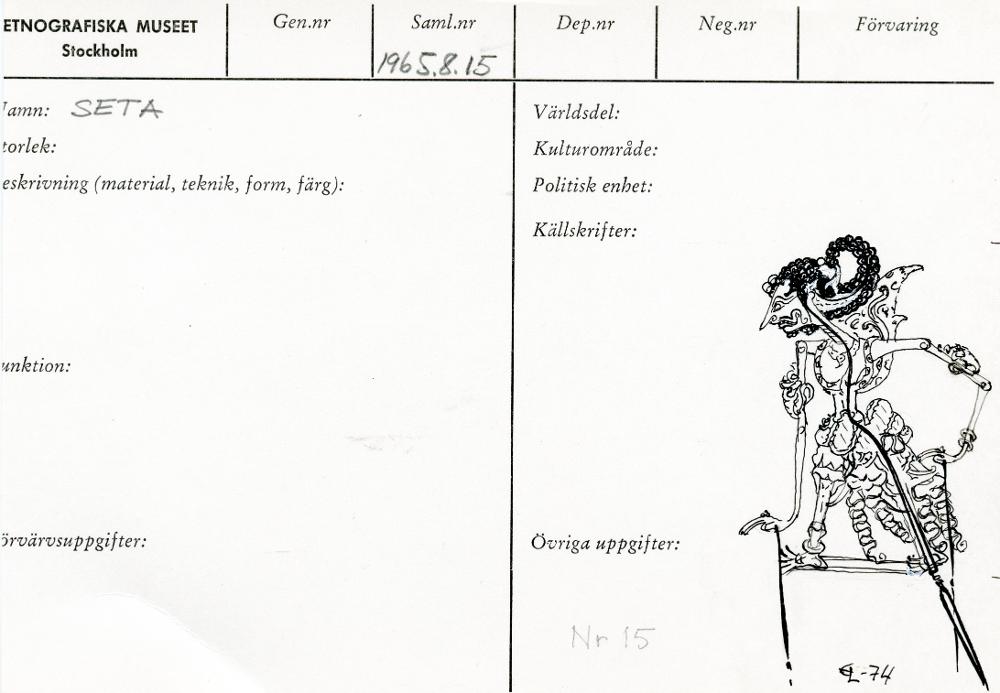 ETNOGRAFISKA MUSEET
Stockholm
Gen.nr
Saml.nr
1965.8.15
Dep.nr
Neg.nr
Förvaring
amn: SETA
torlek:
eskrivning (material, teknik, form, färg):
unktion:
örvärvsuppgifter:
Världsdel:
Kulturområde:
Politisk enhet:
Källskrifter:
Övriga uppgifter:
Nr 15
-74